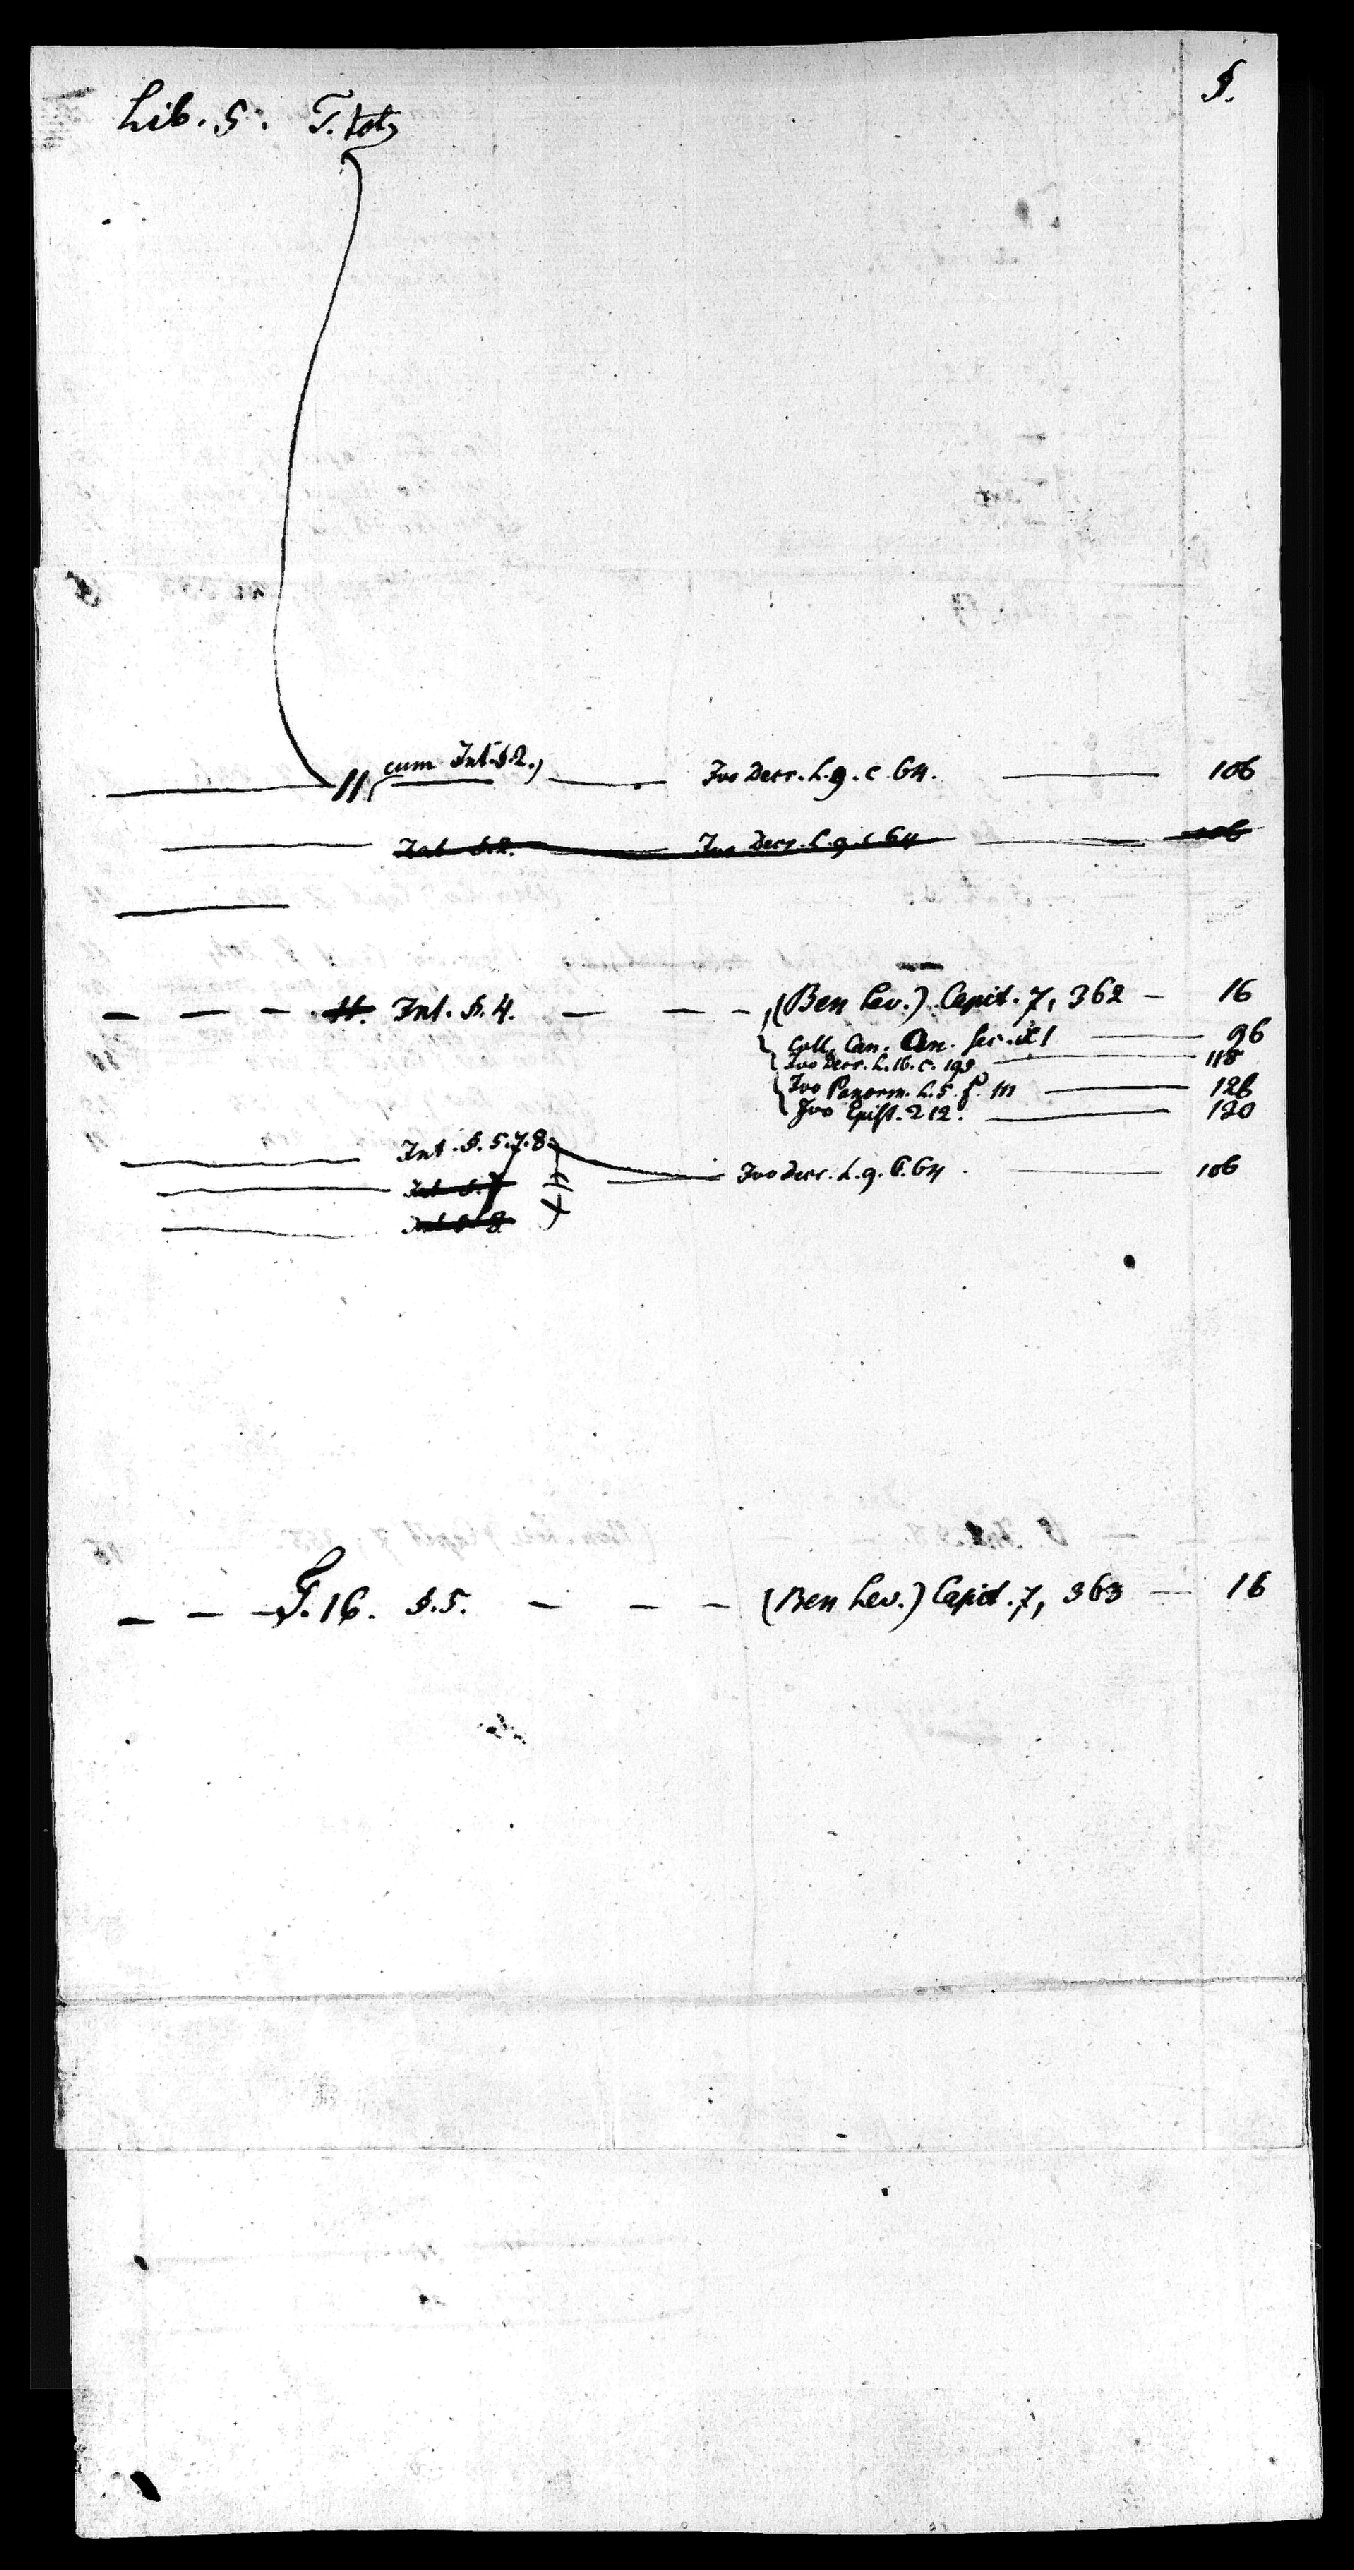 §.
Lib. 5. T. tot.
11 (cum Int. §2.) — Ivo Decr. L. 9. c 64. — 106
Int §.2. — Ivo Decr. L. 9. c 64 — 106
11. Int. §. 4. — (Ben Lev.) Capit. 7, 362 — 16
Coll. Can. An. — 96
Ivo Decr. L. 16. c. — 118
Ivo Panorm. L. 5. — 126
Ivo Epist. 212. — 120
Int. §. 5. 7. 8. — Ivo Decr. L. 9. c. 64 — 106
Int §. 7
Int § 8
T. 16. §. 5. — (Ben Lev.) Capit. 7, 363 — 16